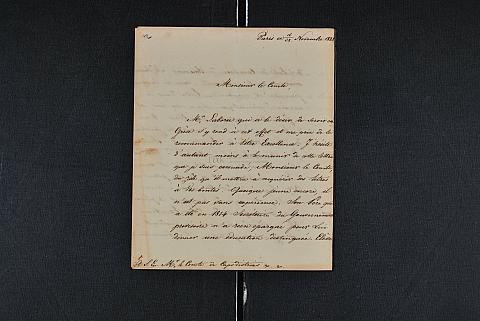 Paris ce Novembre
Monsieur le Comte,
Mr. qui a le désir de servir en
Grèce s'y rend à cet effet et me prie de le
recommander à Votre Excellence. J'hésite
d'autant moins à le munir de cette lettre
que je suis convaincu, Monsieur le Comte
du zèle qu'il mettra à acquérir des titres
à Vos bontés. Quoique jeune encore, il
n'est pas sans expérience. Son Père qui
a été en 1814 Secrétaire du Gouvernement
provisoire n'a rien épargné pour lui
donner une éducation distinguée.
A S. E. Mr. le Comte de Capodistrias